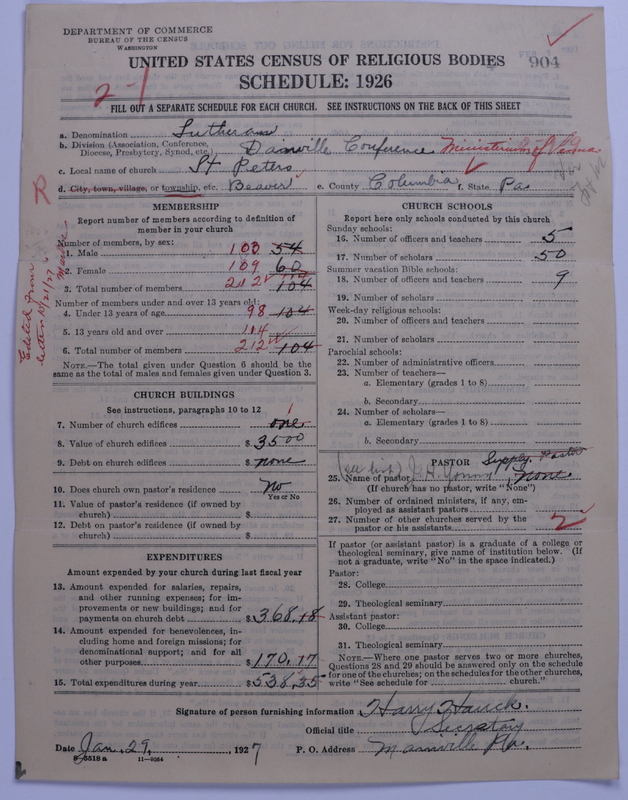 DEPARTMENT OF COMMERCE
BUREAU OF THE CENSUS
WASHINGTON
UNITED STATES CENSUS OF RELIGIOUS BODIES
904
SCHEDULE: 1926
2-1
FILL OUT A SEPARATE SCHEDULE FOR EACH CHURCH. SEE INSTRUCTIONS ON THE BACK OF THIS SHEET
a. Denomination Lutheran
b. Division (Association, Conference, Diocese, Presbytery, Synod, etc.) Danville Conference Ministerium of Penna
c. Local name of church St Peters
d. City, town, village, or township, etc. Beaver e. County Columbia f. State Pa
R
Edited from letter 12/21/27
MEMBERSHIP
Report number of members according to definition of member in your church
Number of members, by sex:
1. Male 103 54
2. Female 109 60
3. Total number of members 212 104
Number of members under and over 13 years old:
4. Under 13 years of age 98 104
5. 13 years old and over 114
6. Total number of members 212 104
NOTE.—The total given under Question 6 should be the same as the total of males and females given under Question 3.
CHURCH BUILDINGS
See instructions, paragraphs 10 to 12
7. Number of church edifices one 1
8. Value of church edifices $ 3500
9. Debt on church edifices $ none
10. Does church own pastor's residence No
Yes or No
11. Value of pastor's residence (if owned by church) $
12. Debt on pastor's residence (if owned by church) $
EXPENDITURES
Amount expended by your church during last fiscal year
13. Amount expended for salaries, repairs, and other running expenses; for improvements or new buildings; and for payments on church debt $ 368.18
14. Amount expended for benevolences, including home and foreign missions; for denominational support; and for all other purposes $ 170.17
15. Total expenditures during year $ 538.35
CHURCH SCHOOLS
Report here only schools conducted by this church
Sunday schools:
16. Number of officers and teachers 5
17. Number of scholars 50
Summer vacation Bible schools:
18. Number of officers and teachers 9
19. Number of scholars
Week-day religious schools:
20. Number of officers and teachers
21. Number of scholars
Parochial schools:
22. Number of administrative officers
23. Number of teachers—
a. Elementary (grades 1 to 8)
b. Secondary
24. Number of scholars—
a. Elementary (grades 1 to 8)
b. Secondary
PASTOR Supply Pastor
25. Name of pastor (see list) Young none
(If church has no pastor, write "None")
26. Number of ordained ministers, if any, employed as assistant pastors
27. Number of other churches served by the pastor or his assistants 2
If pastor (or assistant pastor) is a graduate of a college or theological seminary, give name of institution below. (If not a graduate, write "No" in the space indicated.)
Pastor:
28. College
29. Theological seminary
Assistant pastor:
30. College
31. Theological seminary
NOTE.—Where one pastor serves two or more churches, Questions 28 and 29 should be answered only on the schedule for one of the churches; on the schedules for the other churches, write "See schedule for ______ church."
Signature of person furnishing information Harry Hauck.
Official title Secretary
Date Jan. 29, 1927 P. O. Address Mainville Pa.
8-5518a 11-9054